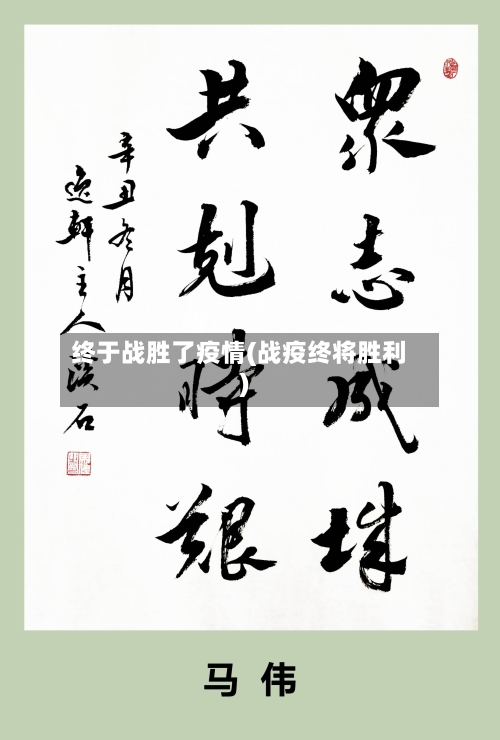 眾志成城
共剋時艱
辛丑冬月
逸軒主人漢石
终于战胜了疫情(战疫终将胜利
)
马伟